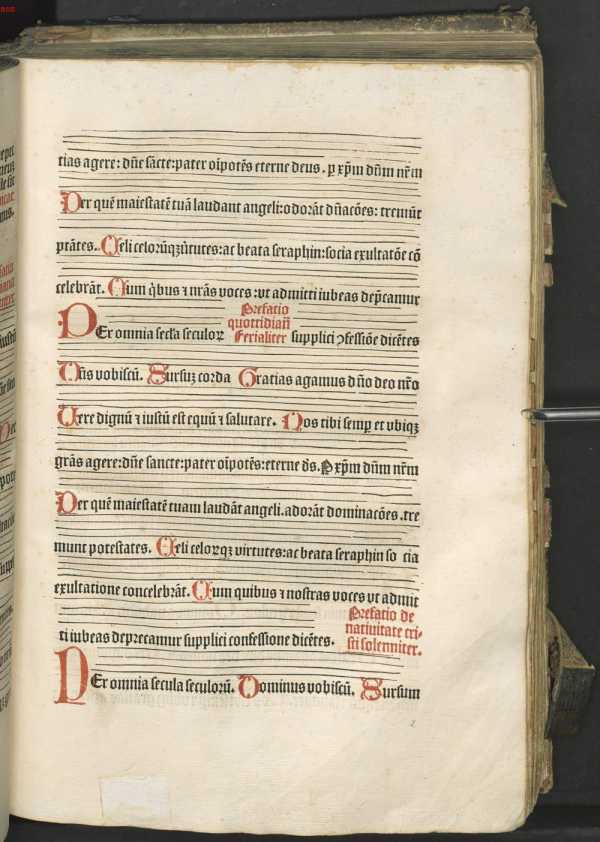 tias agere: dñe sc̃te: pater oĩpotẽs eterne deus. ꝑ xp̃m dñm nr̃m
Per quẽ maiestatẽ tuã laudant angeli: odorãt dñacões: tremũt
ptãtes. Celi celorũqꝫ ũtutes: ac beata seraphin: socia exultatõe cõ
celebrãt. Cum q̃bus ⁊ nr̃as voces: vt admitti iubeas dep̃camur
Prefatio
quottidiañ
Per omnia sec̃la seculoꝝ Ferialiter supplici ꝯfessiõe dicẽtes
Dñs vobiscũ. Sursuꝫ corda Gratias agamus dño deo nr̃o
Vere dignũ ⁊ iustũ est equũ ⁊ salutare. Nos tibi semꝑ et vbiqꝫ
grãs agere: dñe sancte: pater oĩpotẽs: eterne ds̃. P xp̃m dñm nr̃m
Per quẽ maiestatẽ tuam laudãt angeli. adorãt dominacões. tre
munt potestates. Celi celoꝝqꝫ virtutes: ac beata seraphin so cia
exultatione concelebrãt. Cum quibus ⁊ nostras voces vt admit
Prefatio de
natiuitate cri-
ti iubeas deprecamur supplici confessione dicẽtes. sti solenniter.
Per omnia secula seculorũ. Dominus vobiscũ. Sursum
2